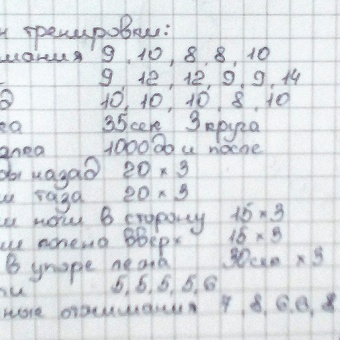 н тренировки:
мания 9, 10, 8, 8, 10
9, 12, 12, 9, 9, 14
10, 10, 10, 8, 10
35 сек 3 круга
алка 1000 до и после
ы назад 20 × 3
м таза 20 × 3
и ноги в сторону 15 × 3
м колена вверх 15 × 3
в упоре лежа 30 сек × 3
5, 5, 5, 5, 6
ные отжимания 7, 8, 6, 6, 8